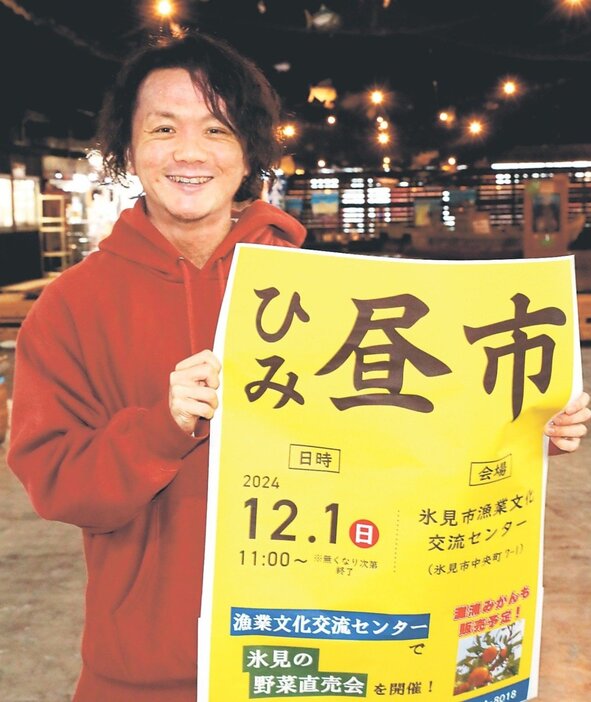 ひみ昼市
日時
2024
12.1日
11:00〜
※無くなり次第
終了
会場
氷見市漁業文化
交流センター
(氷見市中央町7-1)
漁業文化交流センター
で
氷見の
野菜直売会
を開催！
灘浦みかんも
販売予定！
8018